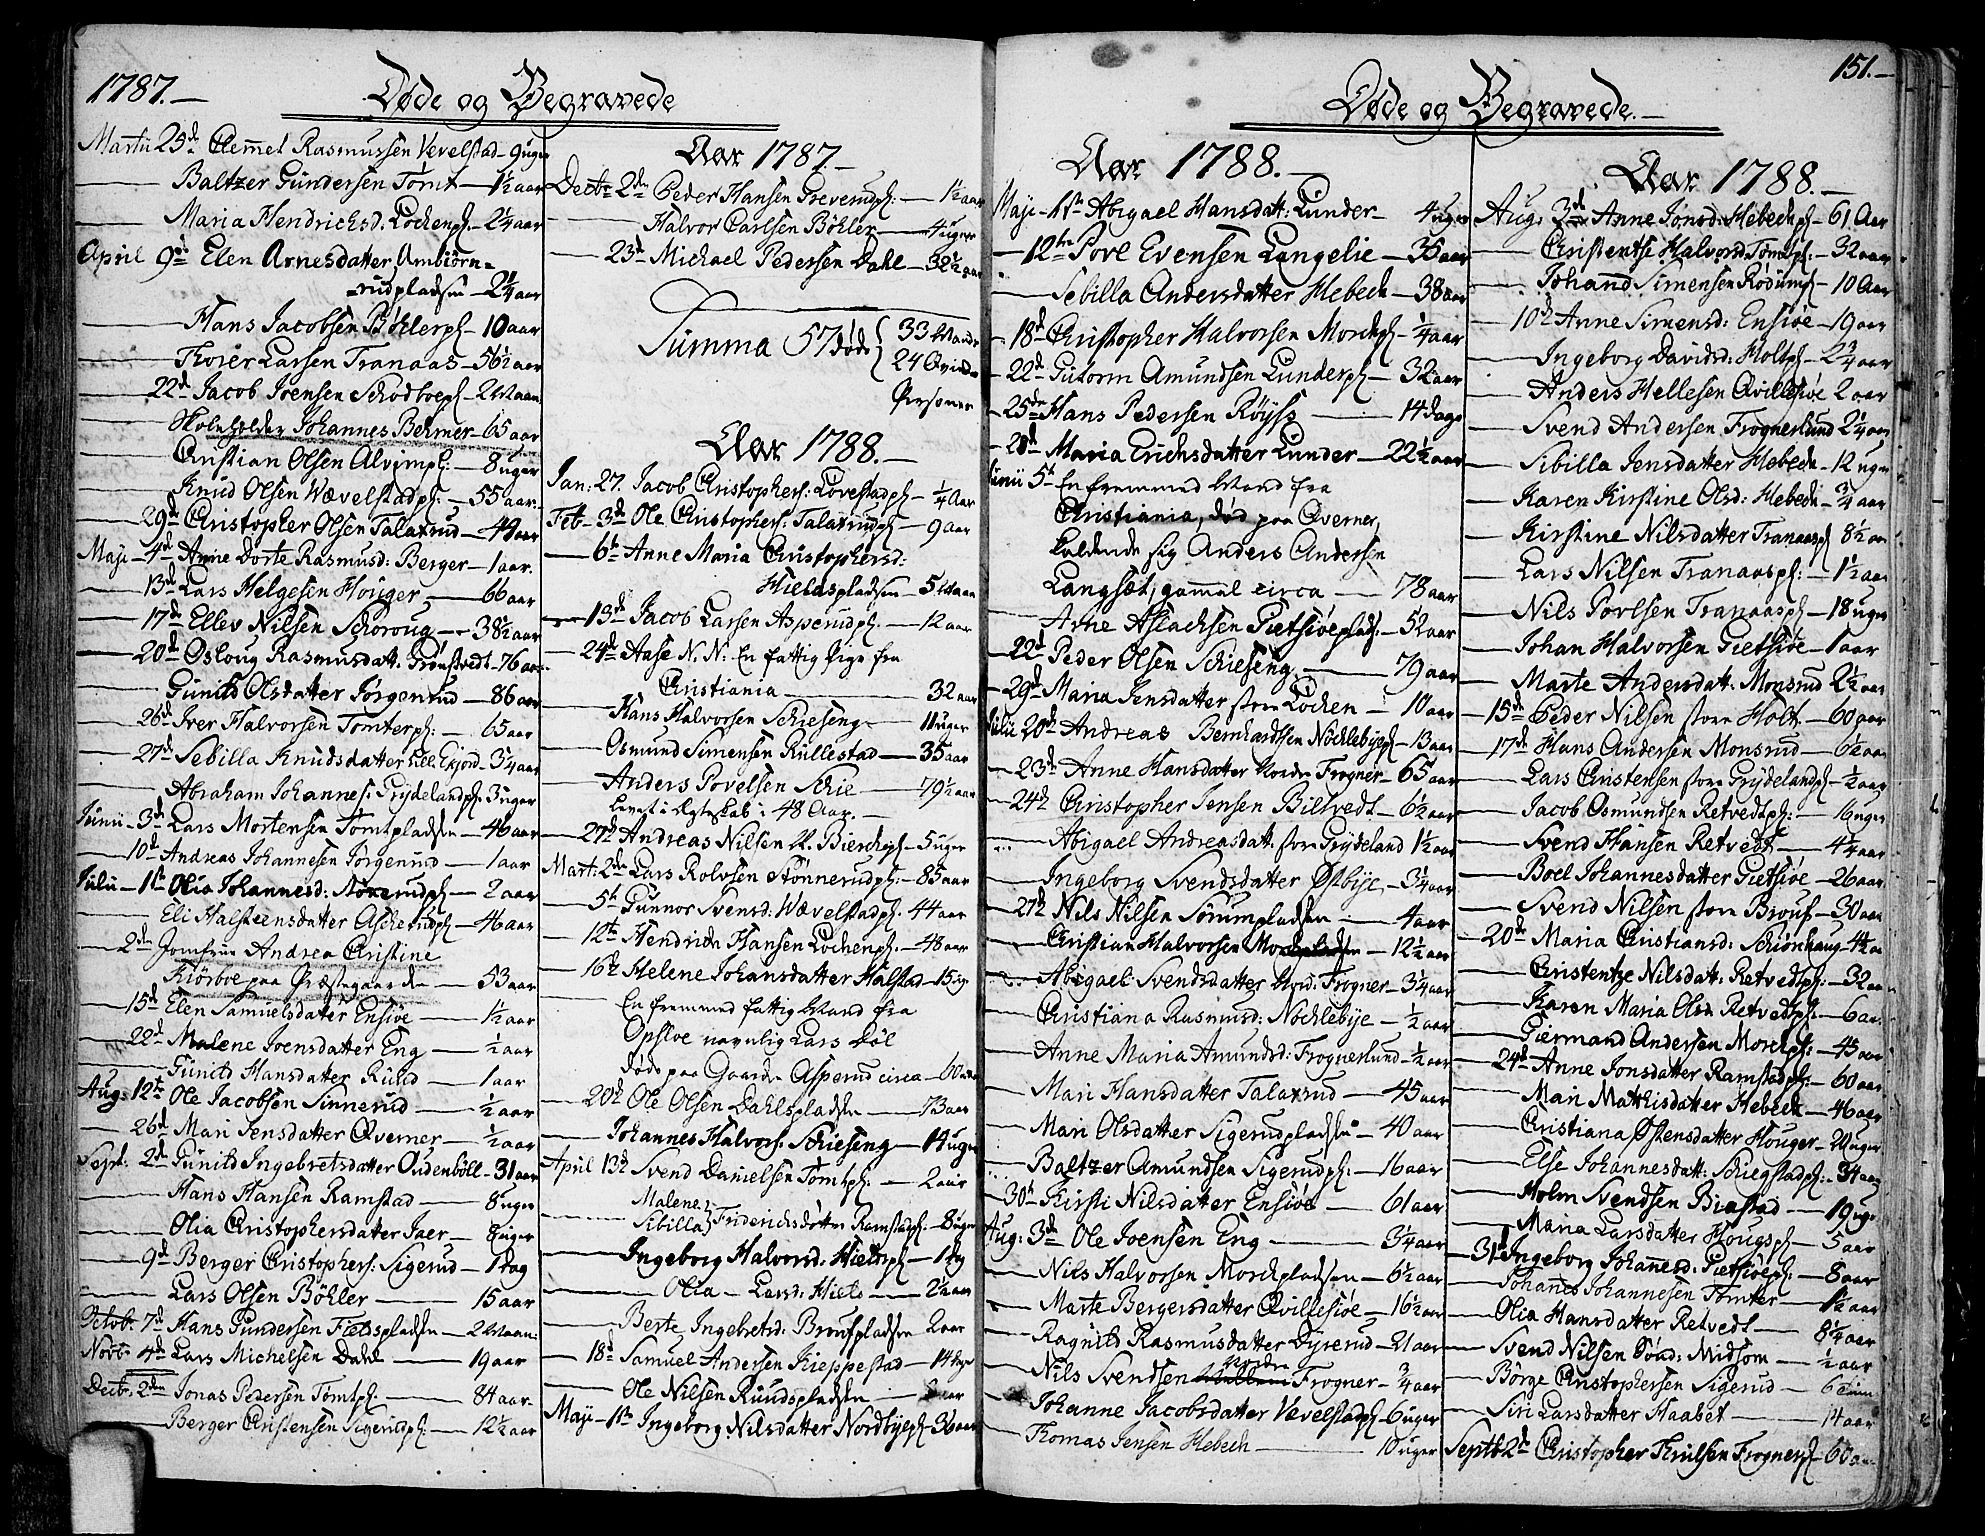 1787.—
Døde og Begravede
Martii 25d Clemmet Rasmussen Vevelstad — 9 uger
Baltzer Gundersen Tomt — 1½ aar
Maria Hendrichsd: Lochenpl. — 2¼ aar
April 9d Elen Arnesdatter Ambiörn=
rudpladsen — 2¼ aar
Hans Jacobsen Böhlerpl — 10 aar
Thoier Larsen Tranaas — 56½ aar
22d Jacob Joensen Schodboepl — 2 Maan
Skoleholder Johannes Behmer — 65 aar
Christian Olsen Alvimpl: — 8 uger
Knud Olsen Wævelstadpl: — 55 aar
29d Christopher Olsen Talaxrud — 49 aar
Maji — 4d Anne Dorte Rasmusd: Berger — 1 aar.
13d Lars Helgesen Houger — 66 aar
17d Ellev Nilsen Schoroug — 38½ aar
20d Osloug Rasmusdatt: Grönstvedt — 76 aar
Gunild Olsdatter Jörgenrud — 86 aar
26d Iver Halvorsen Tomterpl: — 65 aar
27d Sebilla Knudsdatter Lille Exjord — 3¼ aar
Abraham Johannes: Prydelandpl: 3 uger
Junii — 3d Lars Mortensen Tomtpladsen — 46 aar
10d Andreas Johannesen Jörgenrud — 1 aar
Julii — 1ste Olia Johannesd: pl — 2 aar
Eli Halsteensdatter Ascherudpl — 46 aar
2den Jomfrue Andrea Christine
Kiörboe paa Præstegaarden — 53 aar
15d Elen Samuelsdatter Ensiöe — 1½ aar
22d Malene Joensdatter Eng — ½ aar
Gunild Hansdatter Rulld — 1 aar
Aug: 12te Ole Jacobsen Sinnerud — ½ aar
26d Mari Jensdatter Qverner — ½ aar
Sept: 2d Gunild Ingebretsdatter Oudenböll — 31 aar
Hans Hansen Ramstad — 8 uger
Olia Christophersdatter Jaer — 8 uger
9d Berger Christophers: Sigerud — 1 dag
Lars Olsen Böhler — 15 aar
Octob: 7d Hans Gundersen Fietspladsen — 2 Maan:
Novb: 4d Lars Michelsen Dahl — 19 aar
Decbr: 2den Jonas Pedersen Tomtpl: — 84 aar
Berger Christensen Sigerudpl: — 12½ aar
Aar 1787.—
Decbr 2den Peder Hansen Greverudpl: — 1½ aar
Halvor Carlsen Böhler — 4 uger
23d Michael Pedersen Dahl — 32½ aar
Summa 57 döde { 33 Mands
24 Qvinde
Personer
Aar 1788.—
Jan: 27. Jacob Christophers: Lovestadpl — ¼ Aar
Feb — 3d Ole Christophers: Talaxrudpl — 9 aar
6te Anne Maria Christophersd:
Hiebaspladsen — 5 Maan
13d Jacob Larsen Asperudpl: — 12 aar
24d Aase N. N: En fattig Pige fra
Christiania — 32 aar
Hans Halvorsen Schieseng — 11 uger
Osmund Simensen Rullestad — 35 aar
Anders Povelsen Schie — 79½ aar
levet i Egteskab i 48 Aar. —
27d Andreas Nilsen N. Bierchepl — 5 uger
Mart: 2den Lars Rolvsen Stönnerudpl: — 85 aar
5te Gunnor Svensd: Wævelstadpl: 44 aar
12te Hendrich Hansen Lochenpl: — 48 aar
16d Helene Johansdatter Halstad — 15 ug
En fremmed fattig Mand fra
Opsloe navnlig Lars Döl
døde paa Gaarden Asperud circa — 60 aar
20d Ole Olsen Dahlspladsen — 73 aar
Johannes Halvors: Schieseng — 14 uger
April 13d Svend Danielsen Tomtpl: — 2 aar
Malene }
Sibilla } Friderichsdøtter Ramstadpl — 8 uger
Ingeborg Halvorsd: Hieltspl — 1 dg
Olia — Larsd: Hiels — 2½ aar
Berte Ingebretsd: Broutpladsen 2 aar
18d Samuel Andersen Kieppestad — 14 dage
Ole Nilsen Ruudspladsen — aar
Maji — 1ste Ingeborg Nilsdatter Nordbyepl — 36 aar
151.—
Døde og Begravede.—
Aar 1788.—
Maji — 1ste Abigael Hansdatt: Lunder — 4 uger
12te Povl Evensen Langelie — 35 aar
Sebilla Andersdatter Hebech — 38 aar
18d Christopher Halvorsen Morchpl — ¼ aar
22d Gutorm Amundsen Lunderpl — 32 aar
25de Hans Pedersen Röyss — 14 dage
28d Maria Erichsdatter Lunder — 22½ aar
Junii 5te En fremmed Mand fra
Christiania, död paa Qverner,
kaldende sig Anders Andersen
Langset, gammel circa — 78 aar
Arne Aslachsen Pietsiöeplads: — 52 aar
22d Peder Olsen Schieseng — 79 aar
29d Maria Jensdatter store Lochen — 10 aar
Julii 20d Andreas Bernhardtsen Nöchlebyepl — 13 aar
23d Anne Hansdatter Nordre Frogner — 65 aar
24d Christopher Jensen Biltvedt — 6½ aar
Abigael Andreasdatt: store Prydeland 1½ aar
Ingeborg Svendsdatter Østbye — 3¼ aar
27d Nels Nilsen Sörumpladsen — 4 aar
Christian Halvorsen Morchpladsen — 12½ aar
Abigael Svendsdatter Nord: Frogner — 3¼ aar
Christiana Rasmusd: Nöchlebye — ½ aar
Anne Maria Amundsd: Frognerlund — ½ aar
Mari Hansdatter Talaxrud — 45 aar
Mari Olsdatter Sigerudpladsen — 40 aar
Baltzer Amundsen Sigerudpl: — 16 aar
30te Kirsti Nilsdatter Ensiöe — 61 aar
Aug: 3d Ole Joensen Eng — 3¼ aar
Nils Halvorsen Morchpladsen — 6½ aar
Marte Bergersdatter Qvillesiöe — 16½ aar
Ragnild Rasmusdatter Dyrerud — 21 aar
Nils Svendsen nordre Frogner — ¾ aar
Johanne Jacobsdatter Vævelstadpl — 6 uger
Thomas Jensen Hebech — 10 uger
Aar 1788.—
Aug: 3d Anne Jonsd: Hebechpl — 61 Aar
Christentse Halvorsd: Tomtpl: — 32 aar
Johan Simensen Rödumpl — 10 Aar
10d Anne Simensd: Ensiöe — 19 aar
Ingeborg Davidsd: Holtpl — 2¾ aar
Anders Hellesen Qvillesiöe 2 aar
Svend Andersen Frognerlund 2¼ aar
Sibilla Jensdatter Hebech — 12 uger
Karen Kirstine Olsd: Hebech — ¾ aar
Kirstine Nilsdatter Tranaaspl 8½ aar
Lars Nilsen Tranaaspl: — 1½ aar
Nils Povlsen Tranaaspl — 18 uger
Johan Halvorsen Pietsiöe — 1 aar
Marte Andersdatt: Monsrud 2½ aar
15de Peder Nilsen store Holt — 60 aar
17de Hans Andersen Monsrud — 6½ aar
Lars Christensen store Prydelandpl — ½ aar
Jacob Osmundsen Retvedtpl: — 16 uger
Svend Hansen Retvedt — 4¼ aar
Boel Johannesdatter Pietsiöe — 26 aar
Svend Nilsen store Brout — 30 aar
20de Maria Christiansd: Schiönhaug — 4½ a
Christentze Nilsdatt: Retvedtpl: — 32 aar
Karen Maria Olsd: Retvedtpl: — 6 aar
Giermand Andersen Morchpl: — 45 aar
24d Anne Jonsdatter Ramstadpl: — 60 aar
Mari Mathisdatter Hebech — 46 aar
Christiana Østensdatter Houger — 20 uger
Else Johannesdatt: Schiegstadpl: — 34 aar
Holm Svendsen Biastad — 19 ug
Maria Larsdatter Hougspl: — 5 aar
31te Ingeborg Johannesd: Pietsiöepl: — 8 aar
Johannes Johannesen Tomter — 1½ aar
Olia Hansdatter Retvedt — 8¼ aar
Svend Nilsen Söd: Midsom — ½ aar
Börge Christophersen Sigerud — 6
Siri Larsdatter Haabet — 14 aar
Septb 2d Christopher Thrulsen Frognerpl — 60 a